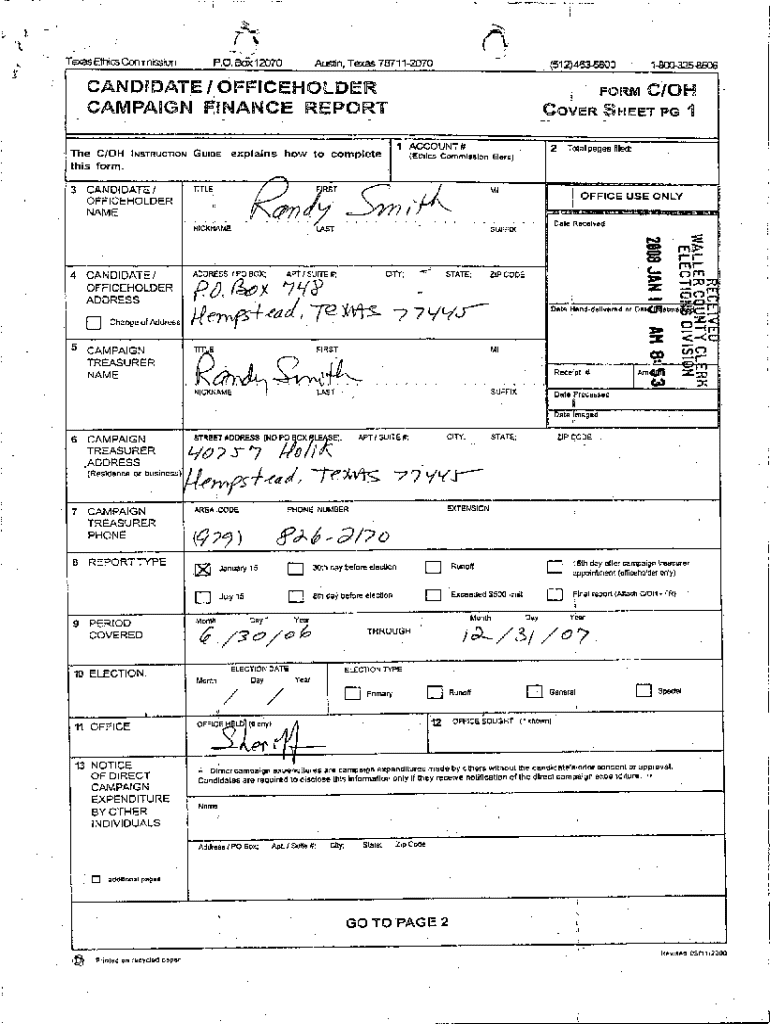 Texas Ethics Commission P.O. Box 12070 Austin, Texas 78711-2070 (512) 463-5800 1-800-325-8506
CANDIDATE / OFFICEHOLDER
CAMPAIGN FINANCE REPORT
FORM C/OH
COVER SHEET PG 1
The C/OH INSTRUCTION GUIDE explains how to complete this form.
1 ACCOUNT #
(Ethics Commission filers)
2 Total pages filed:
3 CANDIDATE / OFFICEHOLDER NAME
TITLE FIRST MI
Randy Smith
NICKNAME LAST SUFFIX
OFFICE USE ONLY
Date Received
RECEIVED
WALLER COUNTY CLERK
ELECTIONS DIVISION
2008 JAN 15 AM 8:53
4 CANDIDATE / OFFICEHOLDER ADDRESS
Change of Address
ADDRESS / PO BOX; APT / SUITE #; CITY; STATE; ZIP CODE
P.O. Box 748
Hempstead, Texas 77445
Date Hand-delivered or Date
5 CAMPAIGN TREASURER NAME
TITLE FIRST MI
Randy Smith
NICKNAME LAST SUFFIX
Receipt #
Date Processed
Date Imaged
6 CAMPAIGN TREASURER ADDRESS
(Residence or business)
STREET ADDRESS (NO PO BOX PLEASE); APT / SUITE #; CITY; STATE; ZIP CODE
40757 Holik
Hempstead, Texas 77445
7 CAMPAIGN TREASURER PHONE
AREA CODE PHONE NUMBER EXTENSION
(979) 826-2170
8 REPORT TYPE
January 15 30th day before election Runoff 15th day after campaign treasurer appointment (officeholder only)
July 15 8th day before election Exceeded $500 limit Final report (Attach C/OH - FR)
9 PERIOD COVERED
Month Day Year
6/30/06
THROUGH
Month Day Year
12/31/07
10 ELECTION
ELECTION DATE
Month Day Year
/ /
ELECTION TYPE
Primary Runoff General Special
11 OFFICE
OFFICE HELD (if any)
Sheriff
12 OFFICE SOUGHT (if known)
13 NOTICE OF DIRECT CAMPAIGN EXPENDITURE BY OTHER INDIVIDUALS
Direct campaign expenditures are campaign expenditures made by others without the candidate's prior consent or approval.
Candidates are required to disclose this information only if they receive notification of the direct campaign expenditure.
Name
Address / PO Box; Apt. / Suite #; City; State; Zip Code
additional pages
GO TO PAGE 2
Printed on recycled paper